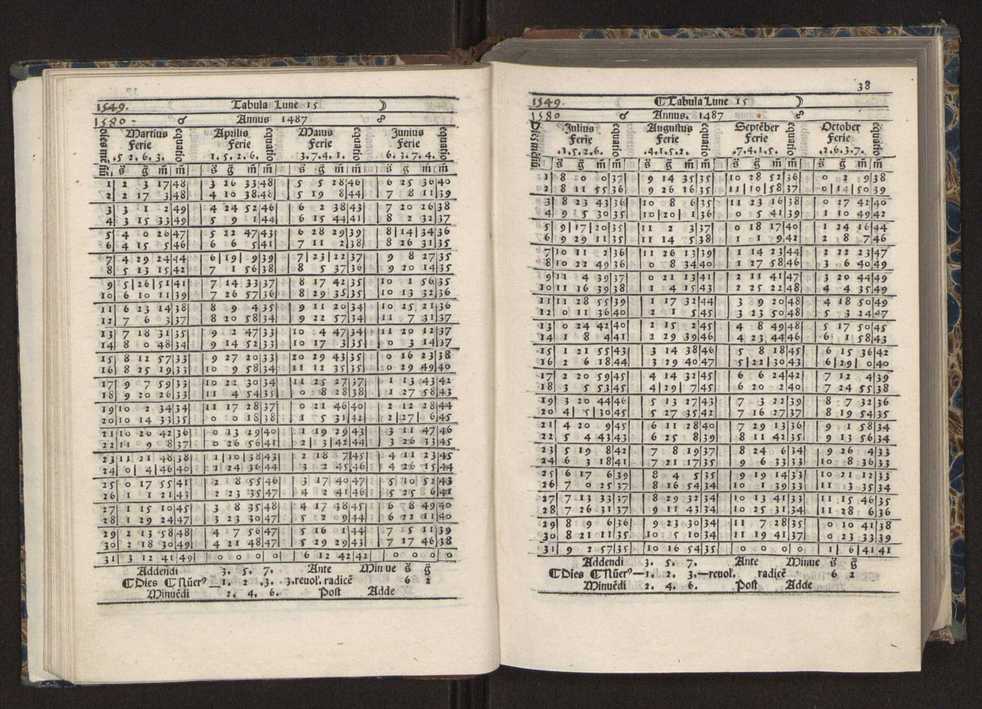 1549. Tabula Lune 15 ☽
1580 - ♂ Annus 1487 ☍
Martius Aprilis Maius Junius
Ferie Ferie Ferie Ferie
.5 2.6.3. 1.5.2.6. 3.7.4.1. 6.3.7.4.
s g m m s g m m s g m m s g m m
1 2 3 17 48 3 26 33 48 5 5 28 46 6 25 36 40
2 2 17 3 48 4 10 38 48 5 19 8 44 7 8 11 39
3 3 1 2 49 4 24 52 46 6 2 38 43 7 20 26 38
4 3 15 33 49 5 9 1 44 6 15 44 41 8 2 32 37
5 4 0 26 47 5 22 47 43 6 28 29 39 8 14 34 36
6 4 15 5 46 6 6 5 41 7 11 2 38 8 26 31 35
7 4 29 24 44 6 19 9 39 7 23 22 37 9 8 27 35
8 5 13 15 42 7 1 56 38 8 5 37 36 9 20 14 35
9 5 26 51 41 7 14 33 37 8 17 42 35 10 1 56 35
10 6 10 11 39 7 26 57 36 8 29 35 35 10 13 32 36
11 6 23 14 38 8 9 4 35 9 11 20 34 10 25 21 36
12 7 6 3 37 8 20 58 34 9 22 57 34 11 7 31 37
13 7 18 31 35 9 2 47 33 10 4 47 34 11 20 12 37
14 8 0 48 34 9 14 52 33 10 17 3 35 0 3 14 37
15 8 12 57 33 9 27 20 33 10 29 43 35 0 16 23 38
16 8 25 19 33 10 9 58 34 11 12 35 35 0 29 49 40
17 9 7 59 33 10 22 30 34 11 25 27 37 1 13 43 42
18 9 20 26 33 11 4 54 35 0 8 28 38 1 27 58 43
19 10 2 34 34 11 17 28 37 0 21 46 40 2 12 28 44
20 10 14 33 35 0 0 18 38 1 5 31 42 2 27 6 45
21 10 20 42 36 0 13 19 40 1 19 29 43 3 11 47 46
22 11 9 8 37 0 26 56 41 2 3 42 44 3 26 33 45
23 11 21 48 38 1 10 38 43 2 18 7 45 4 11 23 45
24 0 4 46 40 1 24 36 44 3 2 45 46 4 26 15 44
25 0 17 55 41 2 8 55 46 3 17 40 47 5 10 52 43
26 1 1 21 43 2 23 35 47 4 2 41 46 5 25 6 41
27 1 15 10 45 3 8 35 48 4 17 38 45 6 8 49 40
28 1 29 24 47 3 23 30 47 5 2 9 44 6 22 11 40
29 2 13 58 48 4 7 56 47 5 16 1 44 7 5 11 39
30 2 18 30 49 4 21 48 47 5 29 29 43 7 17 46 38
31 3 12 41 49 0 0 0 0 6 12 42 42 0 0 0 0
Addendi 3. 5. 7. Ante Minue s g
Dies Nuerꝰ — 1. 2 .3. 3.reuol. radicē 6 2
Minuēdi 2. 4. 6. Post Adde
38
1549. Tabula Lune 15 ☽
1580 ♂ Annus. 1487 ☍
Julius Augustus Septēber October
Ferie Ferie Ferie Ferie
.3.5.2.6. .4.1.5.2. .7.4.1.5. .2.6.3.7.
s g m m s g m m s g m m s g m m
1 8 0 0 37 9 14 35 35 10 28 52 36 0 2 9 38
2 8 11 55 36 9 26 16 35 11 10 58 37 0 14 50 39
3 8 23 43 36 10 8 6 35 11 23 16 38 0 17 42 40
4 9 5 30 35 10 20 1 36 0 5 41 39 1 10 49 42
5 9 17 20 35 11 2 3 37 0 18 17 40 1 24 16 44
6 9 29 11 35 11 14 5 38 1 1 9 42 2 8 7 46
7 10 11 2 36 11 26 13 39 1 14 23 44 2 22 23 47
8 10 22 49 36 0 8 34 40 1 27 58 46 3 6 40 49
9 11 4 39 37 0 21 13 41 2 11 41 47 3 20 44 49
10 11 16 39 38 1 4 15 43 2 25 22 48 4 4 35 49
11 11 28 55 39 1 17 32 44 3 9 20 48 4 18 50 49
12 0 11 36 40 2 1 5 45 3 23 50 48 5 3 24 47
13 0 24 42 40 2 15 2 45 4 8 49 48 5 17 50 45
14 1 8 4 41 2 29 39 46 4 23 44 46 6 1 58 43
15 1 21 55 43 3 14 38 46 5 8 18 45 6 15 36 42
16 2 6 18 44 3 29 40 47 5 22 30 43 6 29 0 40
17 2 20 59 45 4 14 32 45 6 6 24 42 7 12 4 39
18 3 5 53 45 4 29 7 45 6 20 2 40 7 24 55 38
19 3 20 44 46 5 13 17 43 7 3 22 39 8 7 32 36
20 4 5 30 45 5 27 35 42 7 16 27 37 8 19 54 35
21 4 20 9 45 6 11 28 40 7 29 13 36 9 1 58 34
22 5 4 43 43 6 25 8 39 8 11 42 35 9 13 56 34
23 5 19 8 42 7 8 19 37 8 24 6 34 9 26 4 33
24 6 3 18 41 7 21 17 35 9 6 33 33 10 8 36 33
25 6 17 6 39 8 4 5 35 9 19 14 33 10 21 12 33
26 7 0 25 37 8 16 54 34 10 1 39 33 11 3 35 34
27 7 13 33 37 8 29 32 34 10 13 41 33 11 15 46 35
28 7 26 31 37 9 11 43 34 10 25 31 34 11 28 6 36
29 8 9 6 36 9 23 30 34 11 7 28 35 0 10 41 38
30 8 21 11 35 10 5 10 34 11 19 41 37 0 23 33 39
31 9 2 57 35 10 16 54 35 0 0 0 0 1 6 41 41
Addendi 3. 5. 7. Ante Minue s g
Dies Nuerꝰ — 1. 2. 3.—reuol. radicē 6 2
Minuēdi 2. 4. 6. Post Adde